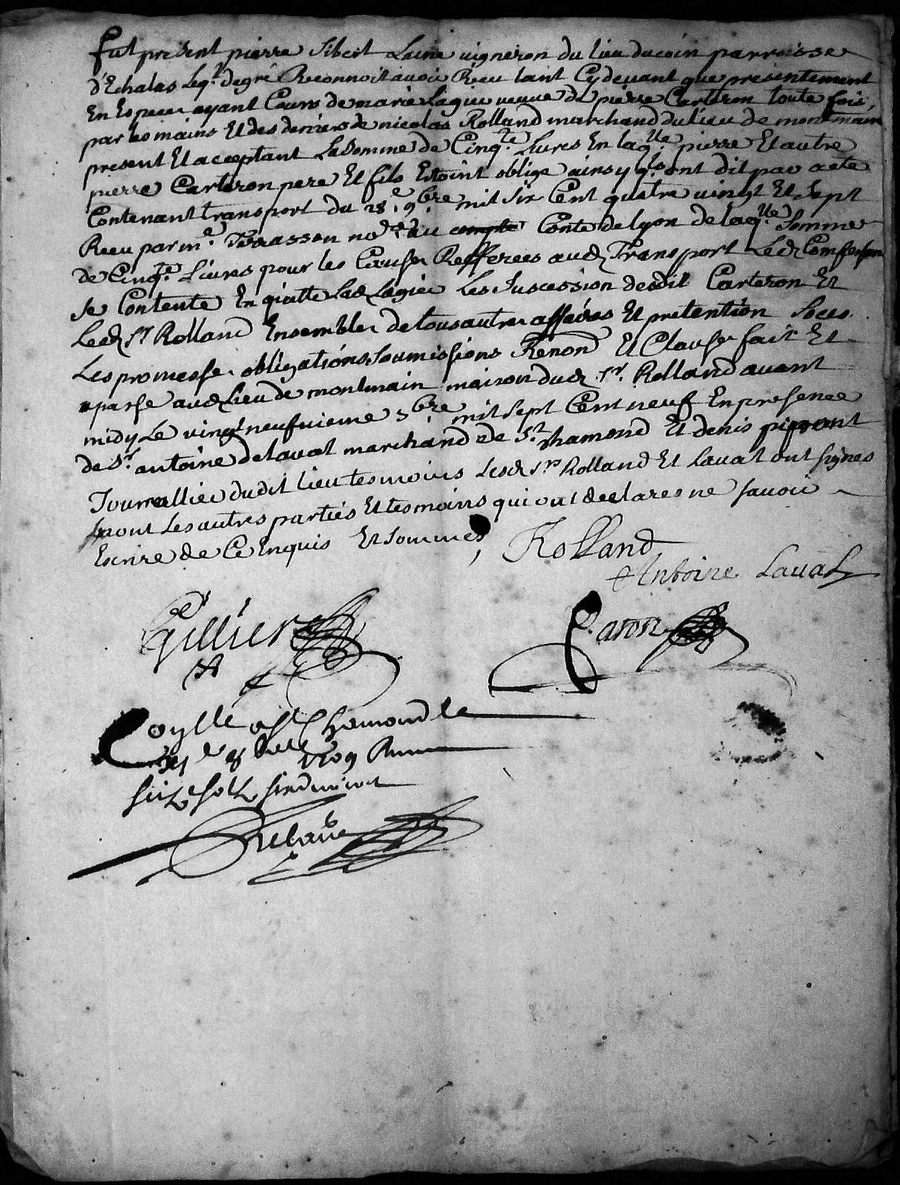 Fut présent pierre Sibert Laine vigneron du lieu du coin parroisse
d'Echalas Leql. de gré Reconnoit avoir Reçu tant Cy devant que presentement
En Especes ayant Cours de marie Lagier veuve de pierre Carteron toute fois
par les mains Et des deniers de nicolas Rolland marchand du lieu de montmain
present Et aceptant La Somme de Cinqte. Livres En laqlle. pierre Et autre
pierre Carteron pere Et fils Estoint obligé ainsy qls. ont dit par acte
Contenant transport du 28e. 9bre mil Six Cent quatre vingt Et Sept
Reçu par me. no.re au Conte de lyon de laqlle. Somme
de Cinqte. Livres pour les Causes Refferees aud Transport Led Confession
Se Contente En quitte Lad Lagier Les Suscession desdit Carteron Et
Led Sr. Rolland Ensemble de tous autre affaires Et pretention Soubs
Les promesse, obligations, Soumissions Renond Et Clause fait Et
passé aud Lieu de montmain maison dud Sr. Rolland avant
midy Le vingt neufvieme 9bre mil Sept Cent neuf En presence
de Sr. antoine de Laval marchand de St. chamond Et denis
Journallier dudit lieu tesmoins Lesd Srs Rolland Et Laval ont signes
Les autres parties Et tesmoins qui ont declares ne savoir
Escrire de Ce Enquis Et Sommés
Rolland
Antoine Laval
Gillier
Paron
Conlle a St Chamond le
1709 Reçu
six sols